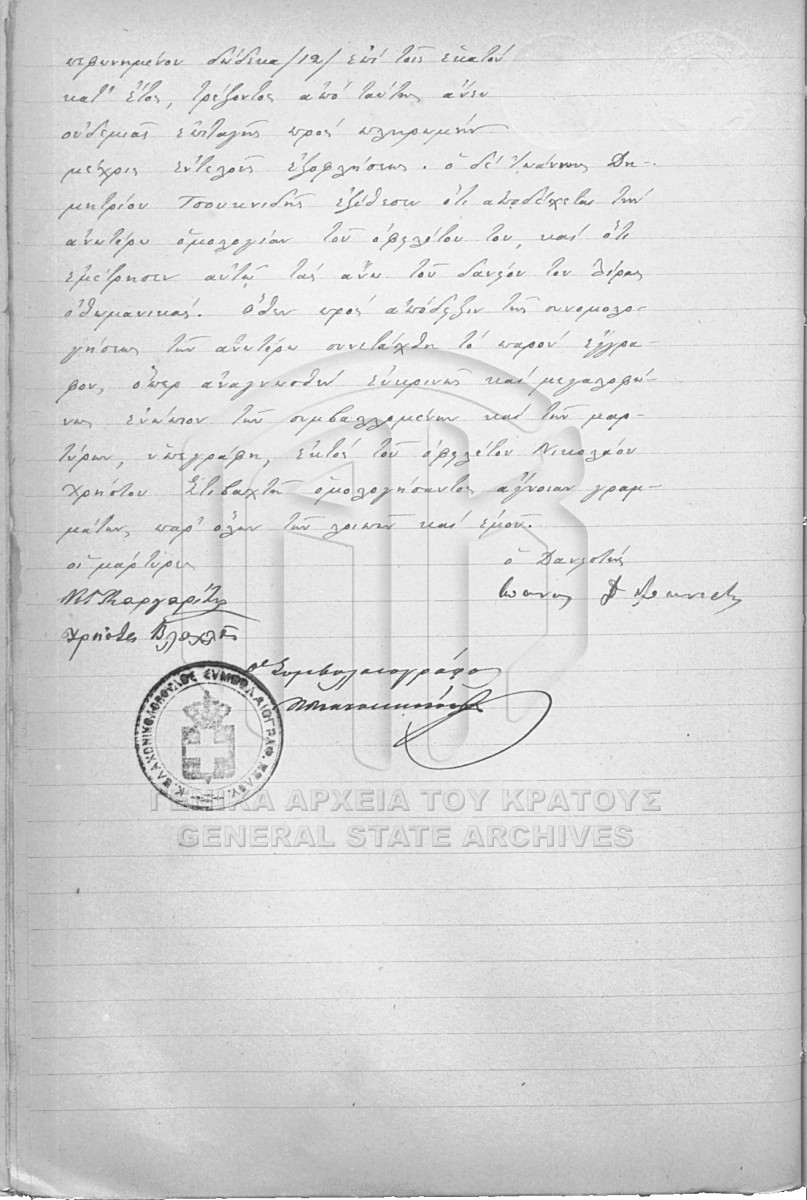 πεφωνημένον δώδεκα /12/ επί τοις εκατόν
κατ' έτος, τρέξοντος από ταύτης άνευ
ουδεμιάς επιταγής προς πληρωμήν
μέχρις εντελούς εξοφλήσεως. ο δε Ιωάννης Δη-
μητρίου Τσουκνιδής εξέθεσεν ότι αποδέχεται την
ανωτέρω ομολογίαν του οφειλέτου του, και ότι
εμέτρησεν αυτώ τας άνω του δανείου του λίρας
οθωμανικάς. Όθεν προς απόδειξιν της συνομολο-
γήσεως των ανωτέρω συνετάχθη το παρόν έγγρα-
φον, όπερ αναγνωσθέν ευκρινώς και μεγαλοφώ-
νως ενώπιον των συμβαλλομένων και των μαρ-
τύρων, υπεγράφη, εκτός του οφειλέτου Νικολάου
Χρήστου Στιβαχτή ομολογήσαντος άγνοιαν γραμ-
μάτων, παρ' όλων των λοιπών και εμού.
οι μάρτυρες ο Δανειστής
Μαργαρίτης
Χρήστος Βλαχ
ο Συμβολαιογράφος
Κ. ΒΛΑΧΟΝΙΚΟΛΟΠΟΥΛΟΣ ΣΥΜΒΟΛΑΙΟΓΡΑΦ.
ΓΕΝΙΚΑ ΑΡΧΕΙΑ ΤΟΥ ΚΡΑΤΟΥΣ
GENERAL STATE ARCHIVES